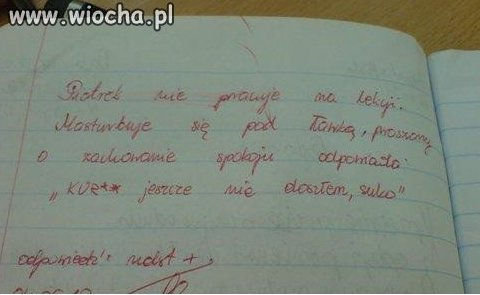 www.wiocha.pl
Piotrek nie pracuje na lekcji.
Masturbuje się pod ławką, proszony
o zachowanie spokoju odpowiada:
„KUR** jeszcze nie doszłem, suko"
odpowiedź: ndst +